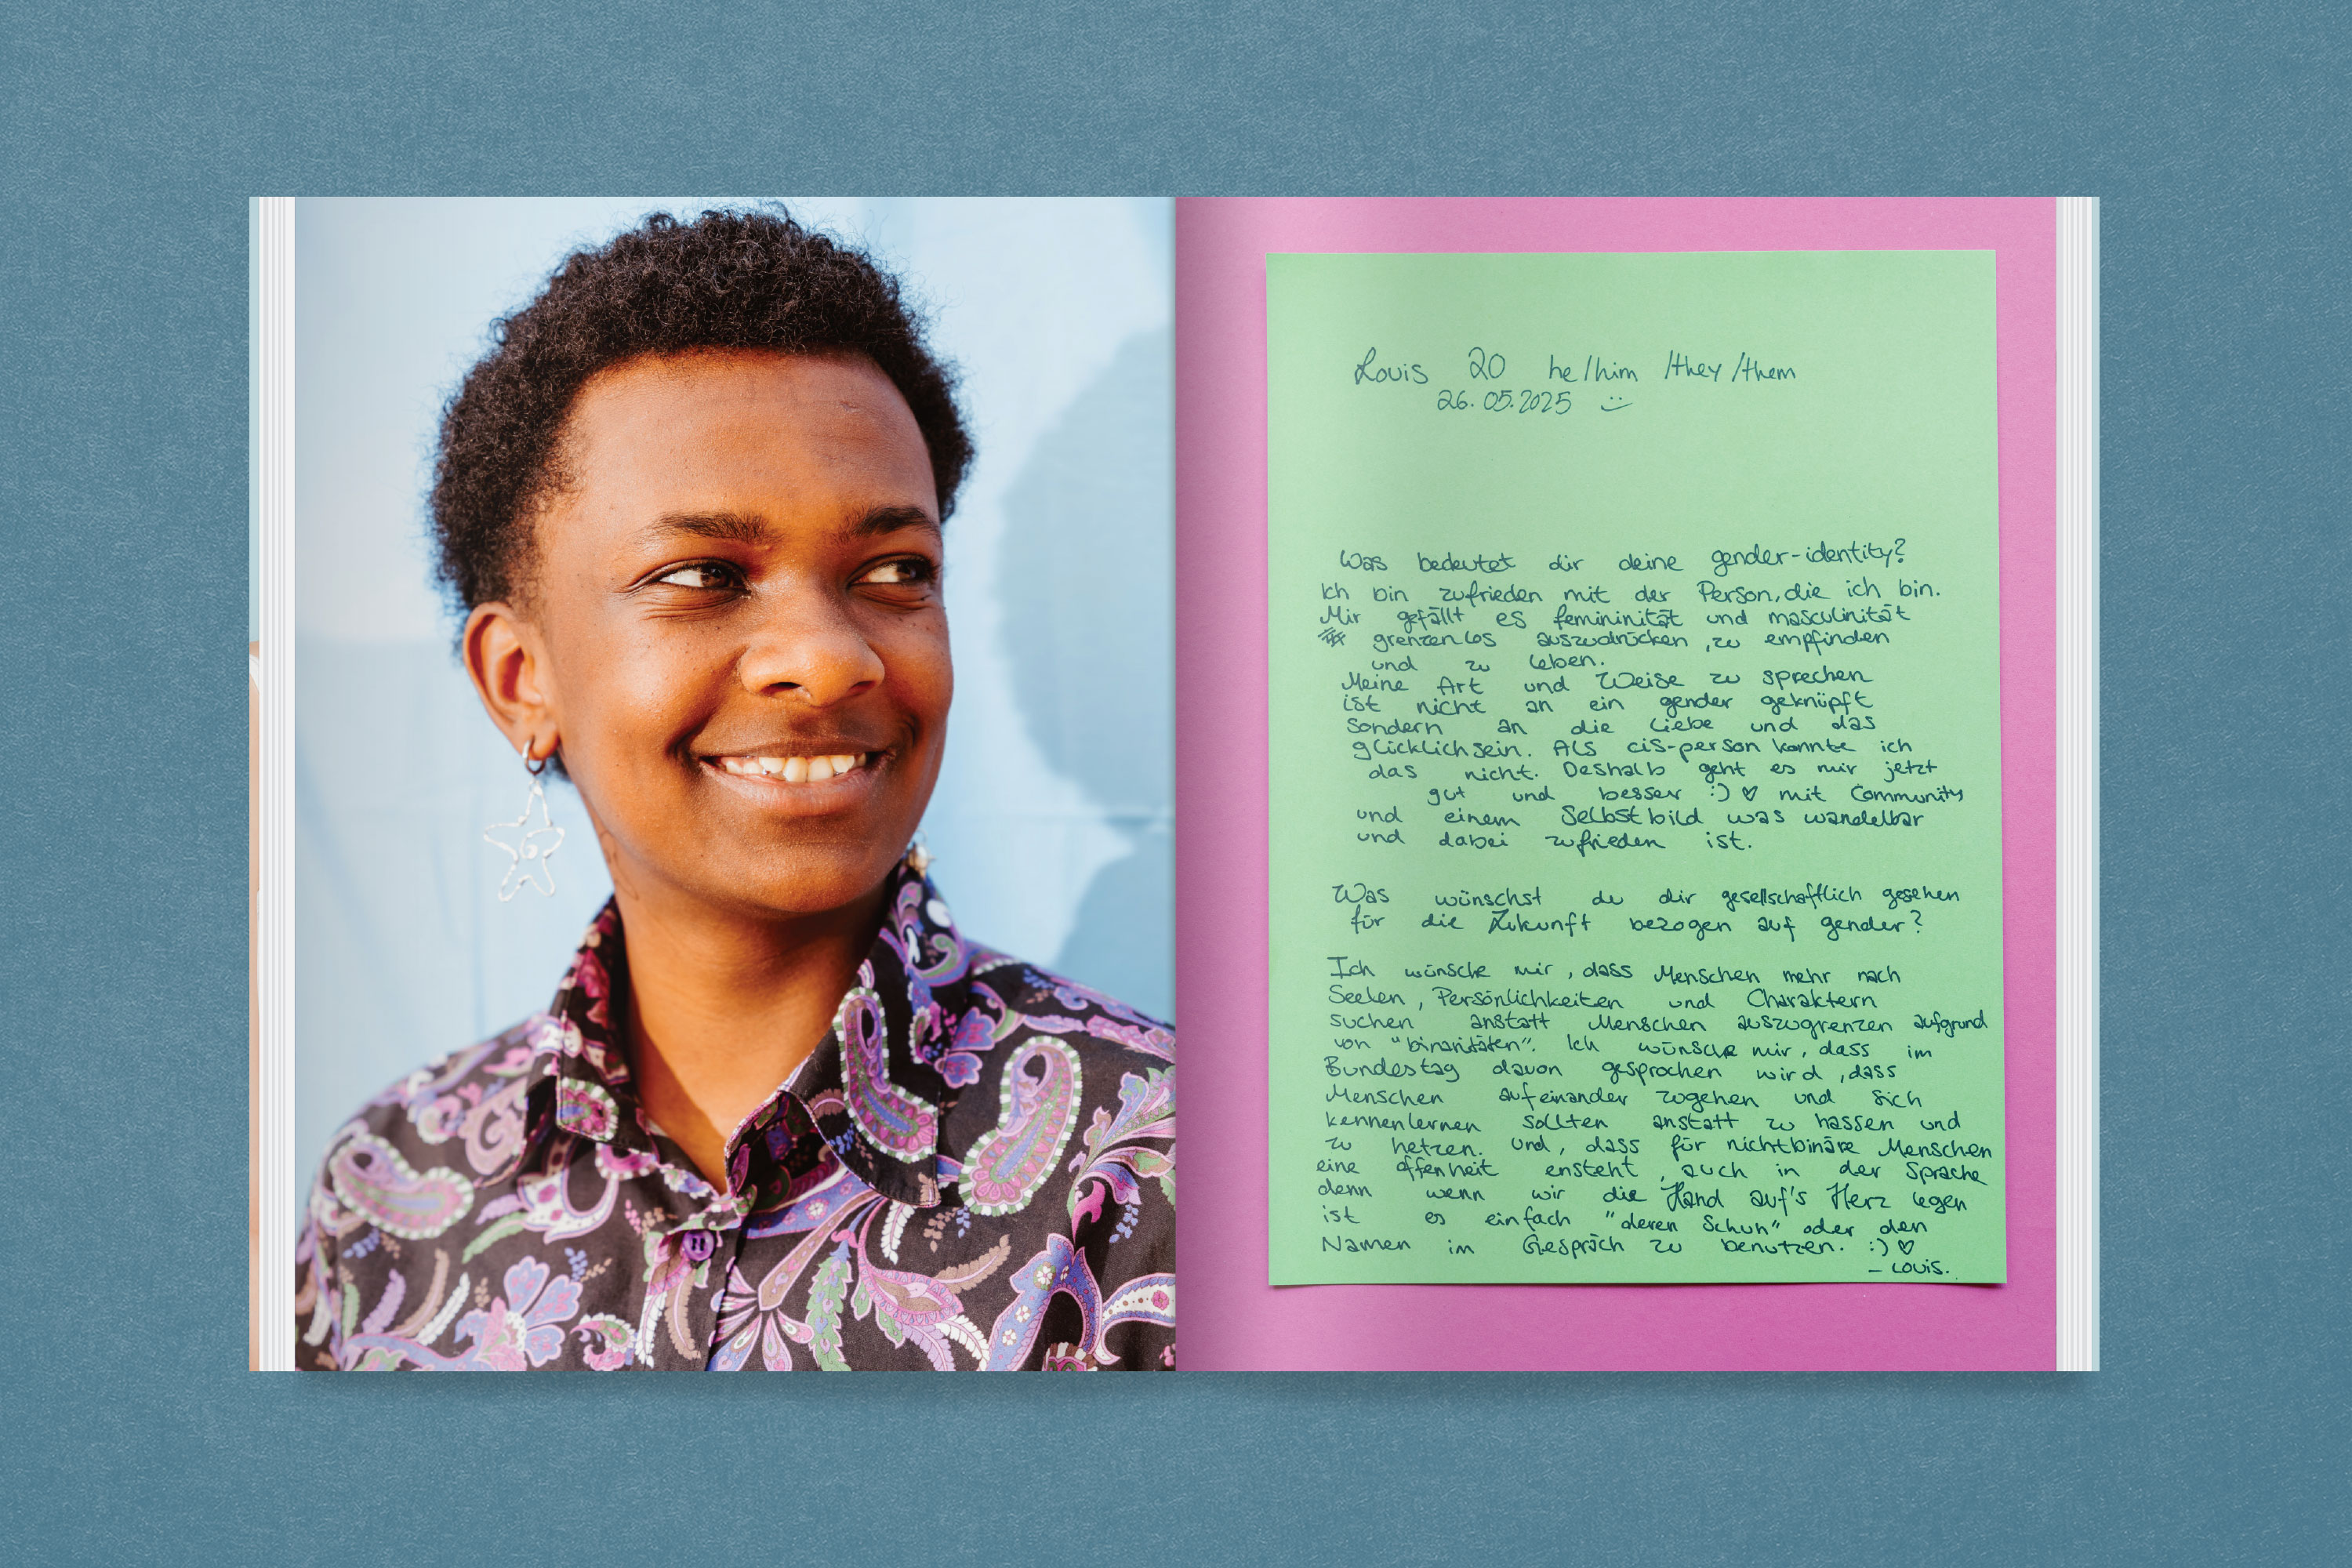 Louis 20 he/him /they/them
26.05.2025 :)
Was bedeutet dir deine gender-identity?
Ich bin zufrieden mit der Person, die ich bin.
Mir gefällt es femininität und masculinität
grenzenlos auszudrücken, zu empfinden
und zu leben.
Meine Art und Weise zu sprechen
ist nicht an ein gender geknüpft
sondern an die Liebe und das
glücklichsein. Als cis-person konnte ich
das nicht. Deshalb geht es mir jetzt
gut und besser :) ♡ mit Community
und einem Selbstbild was wandelbar
und dabei zufrieden ist.
Was wünschst du dir gesellschaftlich gesehen
für die Zukunft bezogen auf gender?
Ich wünsche mir, dass Menschen mehr nach
Seelen, Persönlichkeiten und Charaktern
suchen anstatt Menschen auszugrenzen aufgrund
von "binaritäten". Ich wünsche mir, dass im
Bundestag davon gesprochen wird, dass
Menschen aufeinander zugehen und sich
kennenlernen sollten anstatt zu hassen und
zu hetzen. Und, dass für nichtbinäre Menschen
eine offenheit ensteht, auch in der Sprache
denn wenn wir die Hand auf's Herz legen
ist es einfach "deren Schuh" oder den
Namen im Gespräch zu benutzen. :) ♡
- Louis.